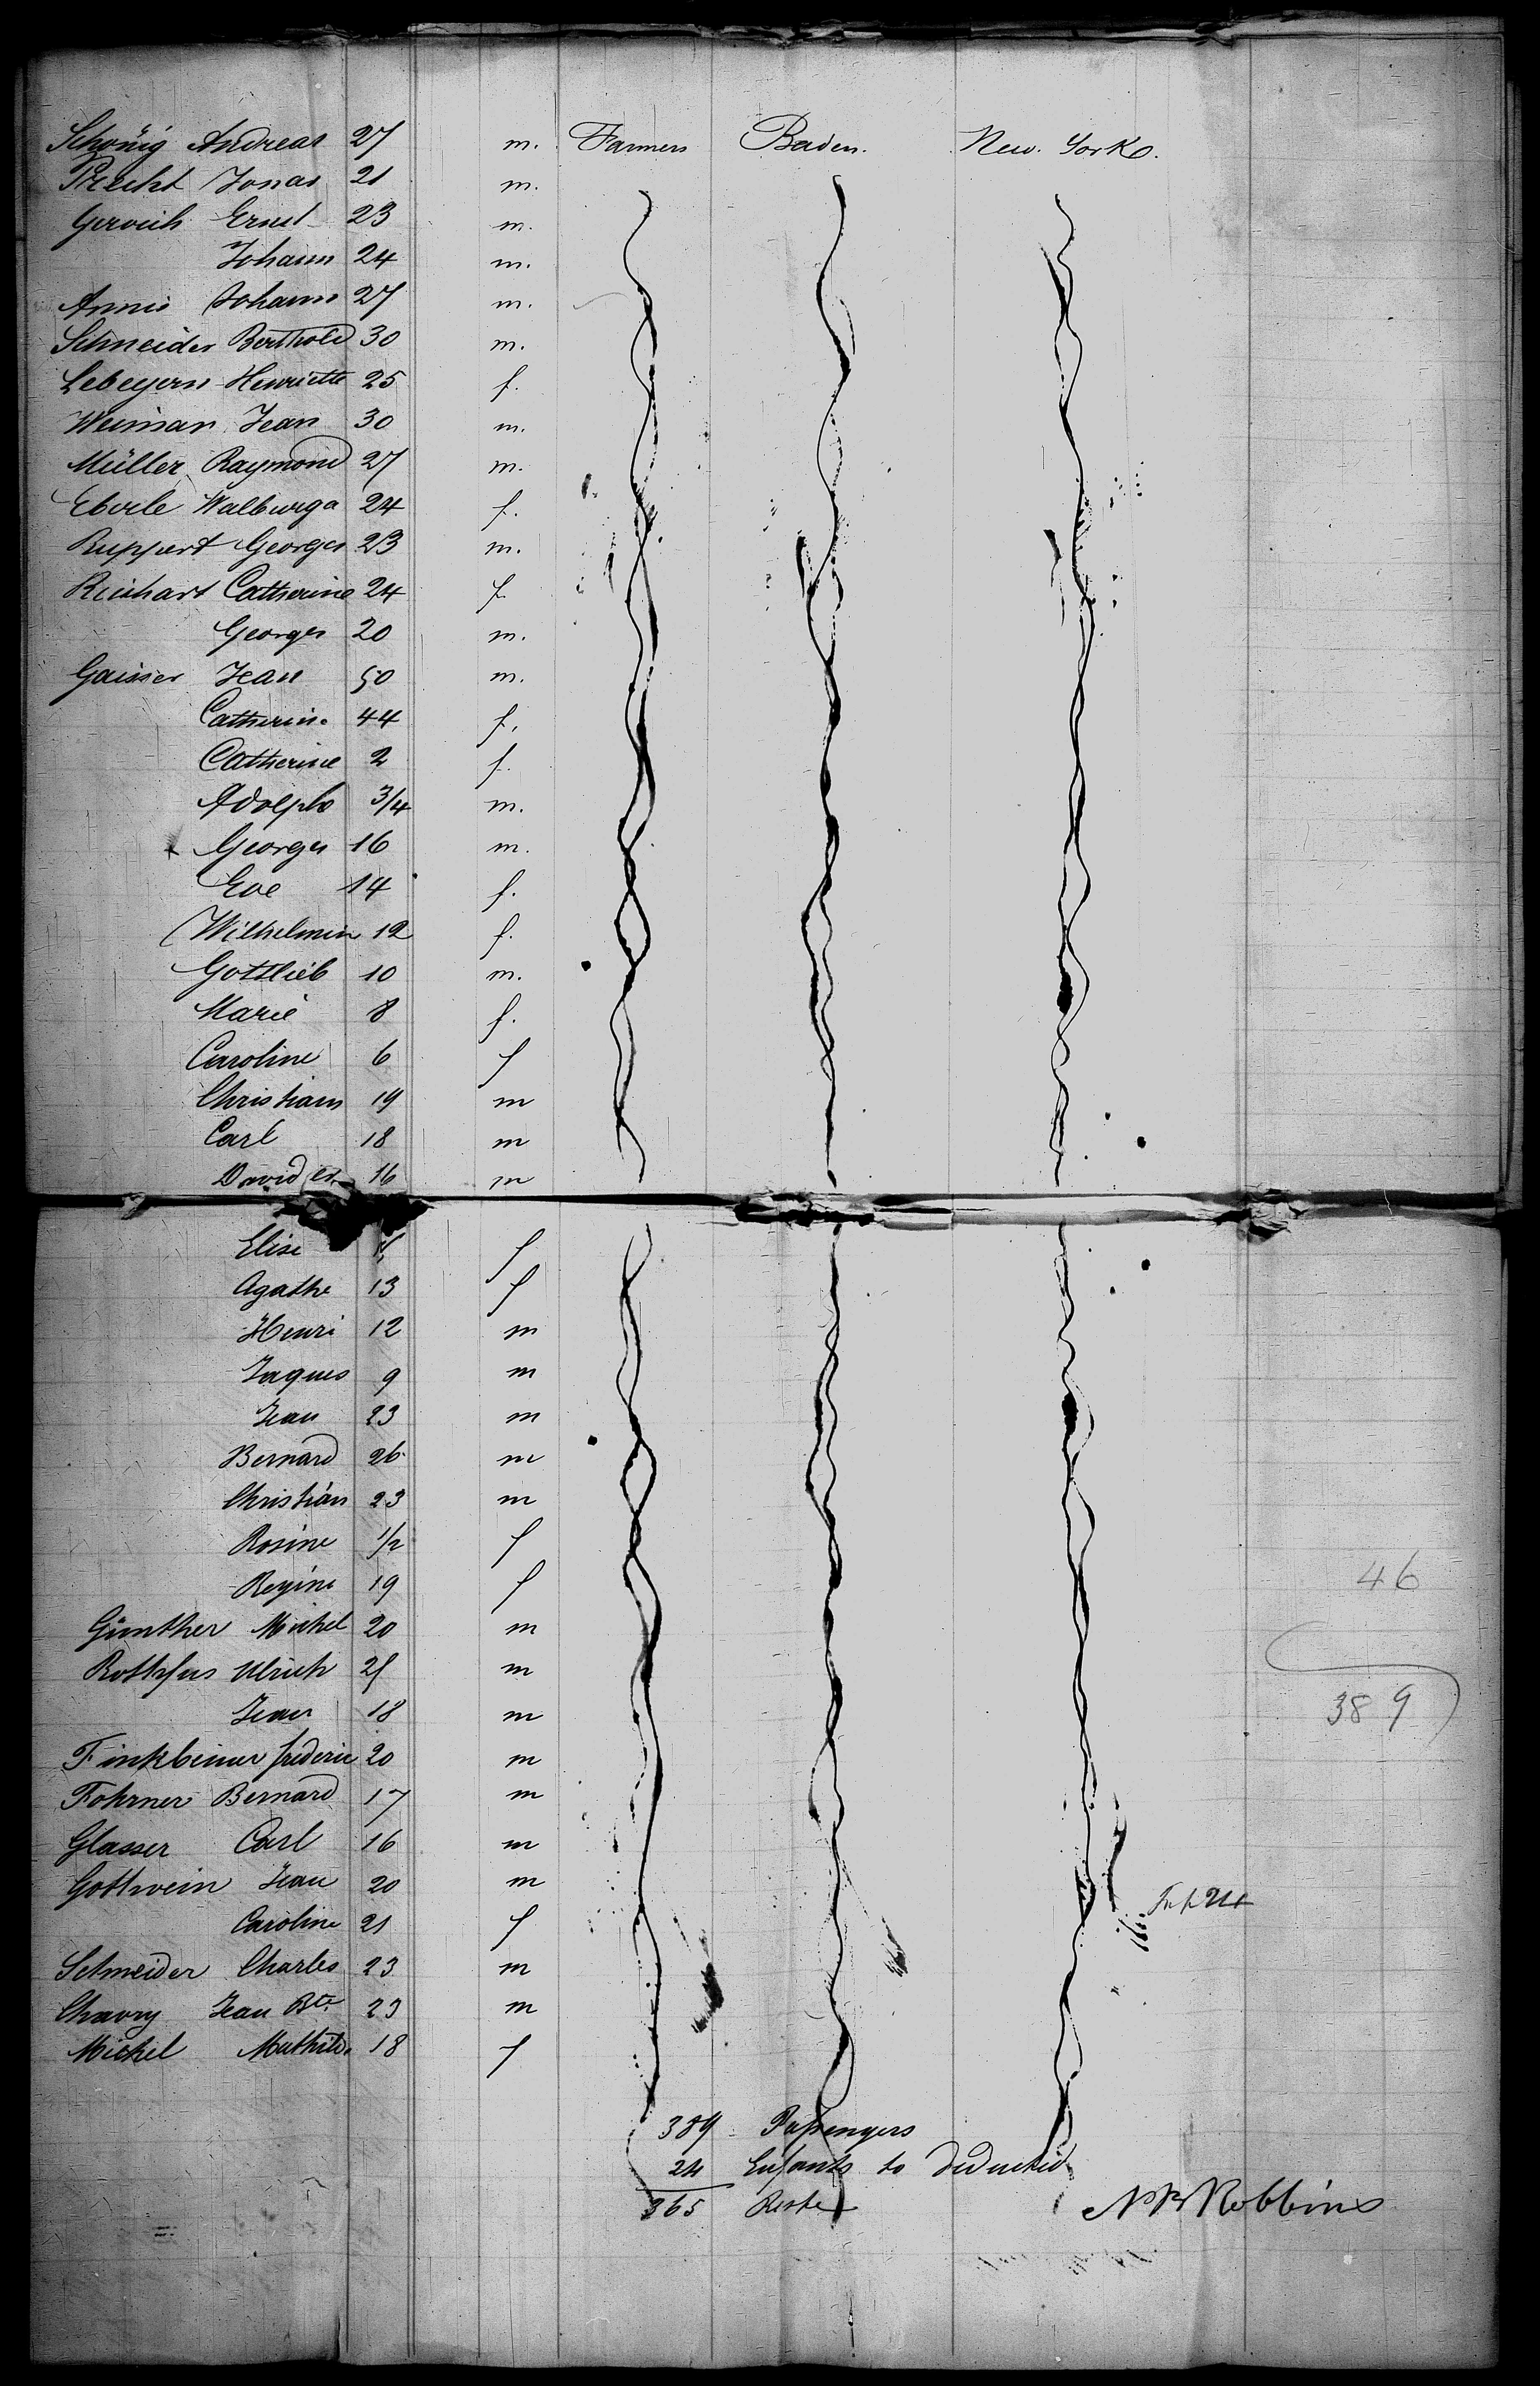 Schönig Andreas 27 m. Farmers Baden. New. York.
Precht Jonas 21 m.
Gervich Ernst 23 m.
Johann 24 m.
Annis Johann 27 m.
Schneider Berthold 30 m.
Lebeyern Henriette 25 f.
Weiman Jean 30 m.
Müller Raymond 27 m.
Eberle Walburga 24 f.
Ruppert Georges 23 m.
Reichart Catherine 24 f
Georges 20 m.
Gaisser Jean 50 m.
Catherine 44 f.
Catherine 2 f.
Adolphe 3/4 m.
Georges 16 m.
Eve 14 f.
Wilhelmin 12 f.
Gottlieb 10 m.
Marie 8 f.
Caroline 6 f
Christian 19 m
Carl 18 m
David 16 m
Elise f
Agathe 13 f
Henri 12 m
Jaques 9 m
Jean 23 m
Bernard 26 m
Christian 23 m
Rosine 1/2 f
Regine 19 f
46
Günther Michel 20 m
Rothfus Ulrich 25 m
Jean 18 m
389
Finkbeiner frederic 20 m
Fohrner Bernard 17 m
Glasser Carl 16 m
Gottwein Jean 20 m
Caroline 21 f
Schneider Charles 23 m
Chavry Jean Bte 23 m
Michel Mathilde 18 f
389 Passengers
24 Enfants to deducted
365 Reste
N B Robbins